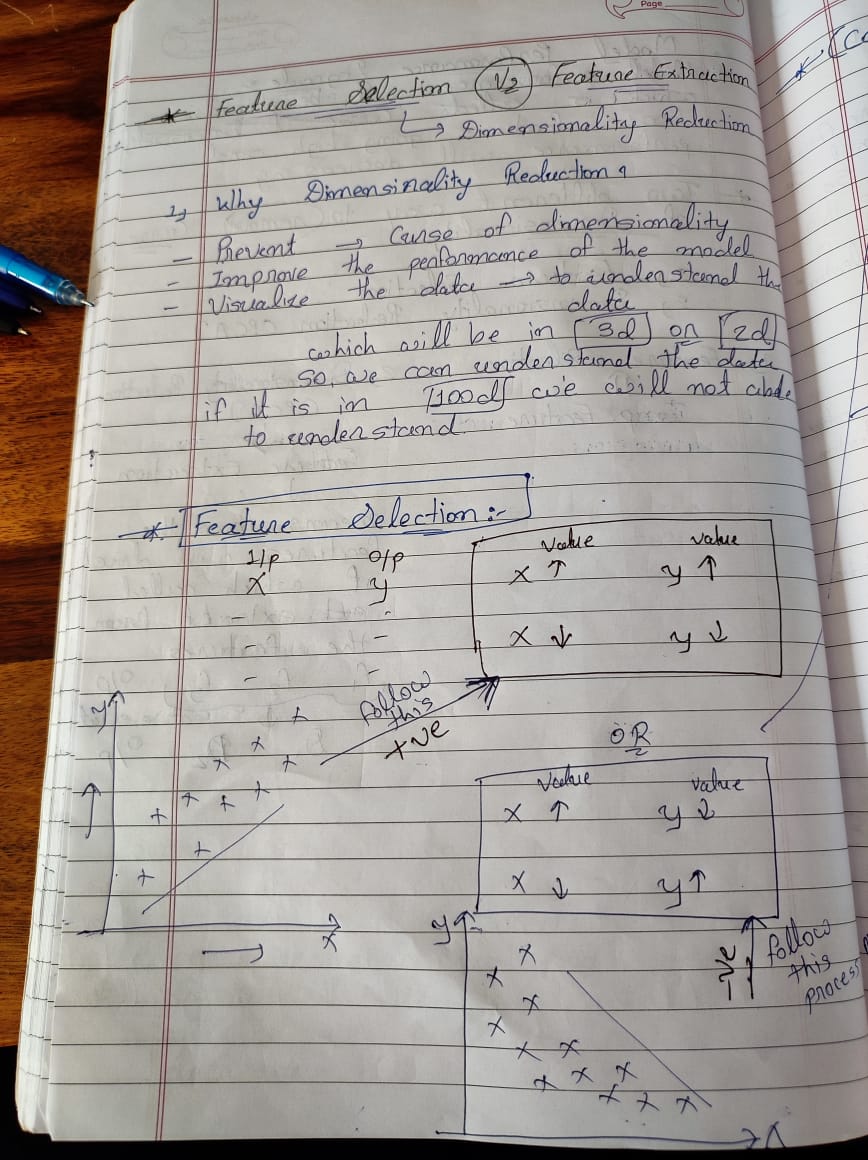 Page
* Feature Selection Vs Feature Extraction
↳ Dimensionality Reduction
1) Why Dimensinality Reduction ?
- Prevent → Curse of dimensionality
- Improve the performance of the model
- Visualize the data → to understand the
data
which will be in 3d or 2d
so, we can understand the data
if it is in 100d we will not able
to understand.
* Feature Selection :-
I/p O/p
X y
- -
- -
- -
value value
X ↑ y ↑
X ↓ y ↓
follow
this
+ve
y
X
OR
value value
X ↑ y ↓
X ↓ y ↑
-ve
follow
this
process
y